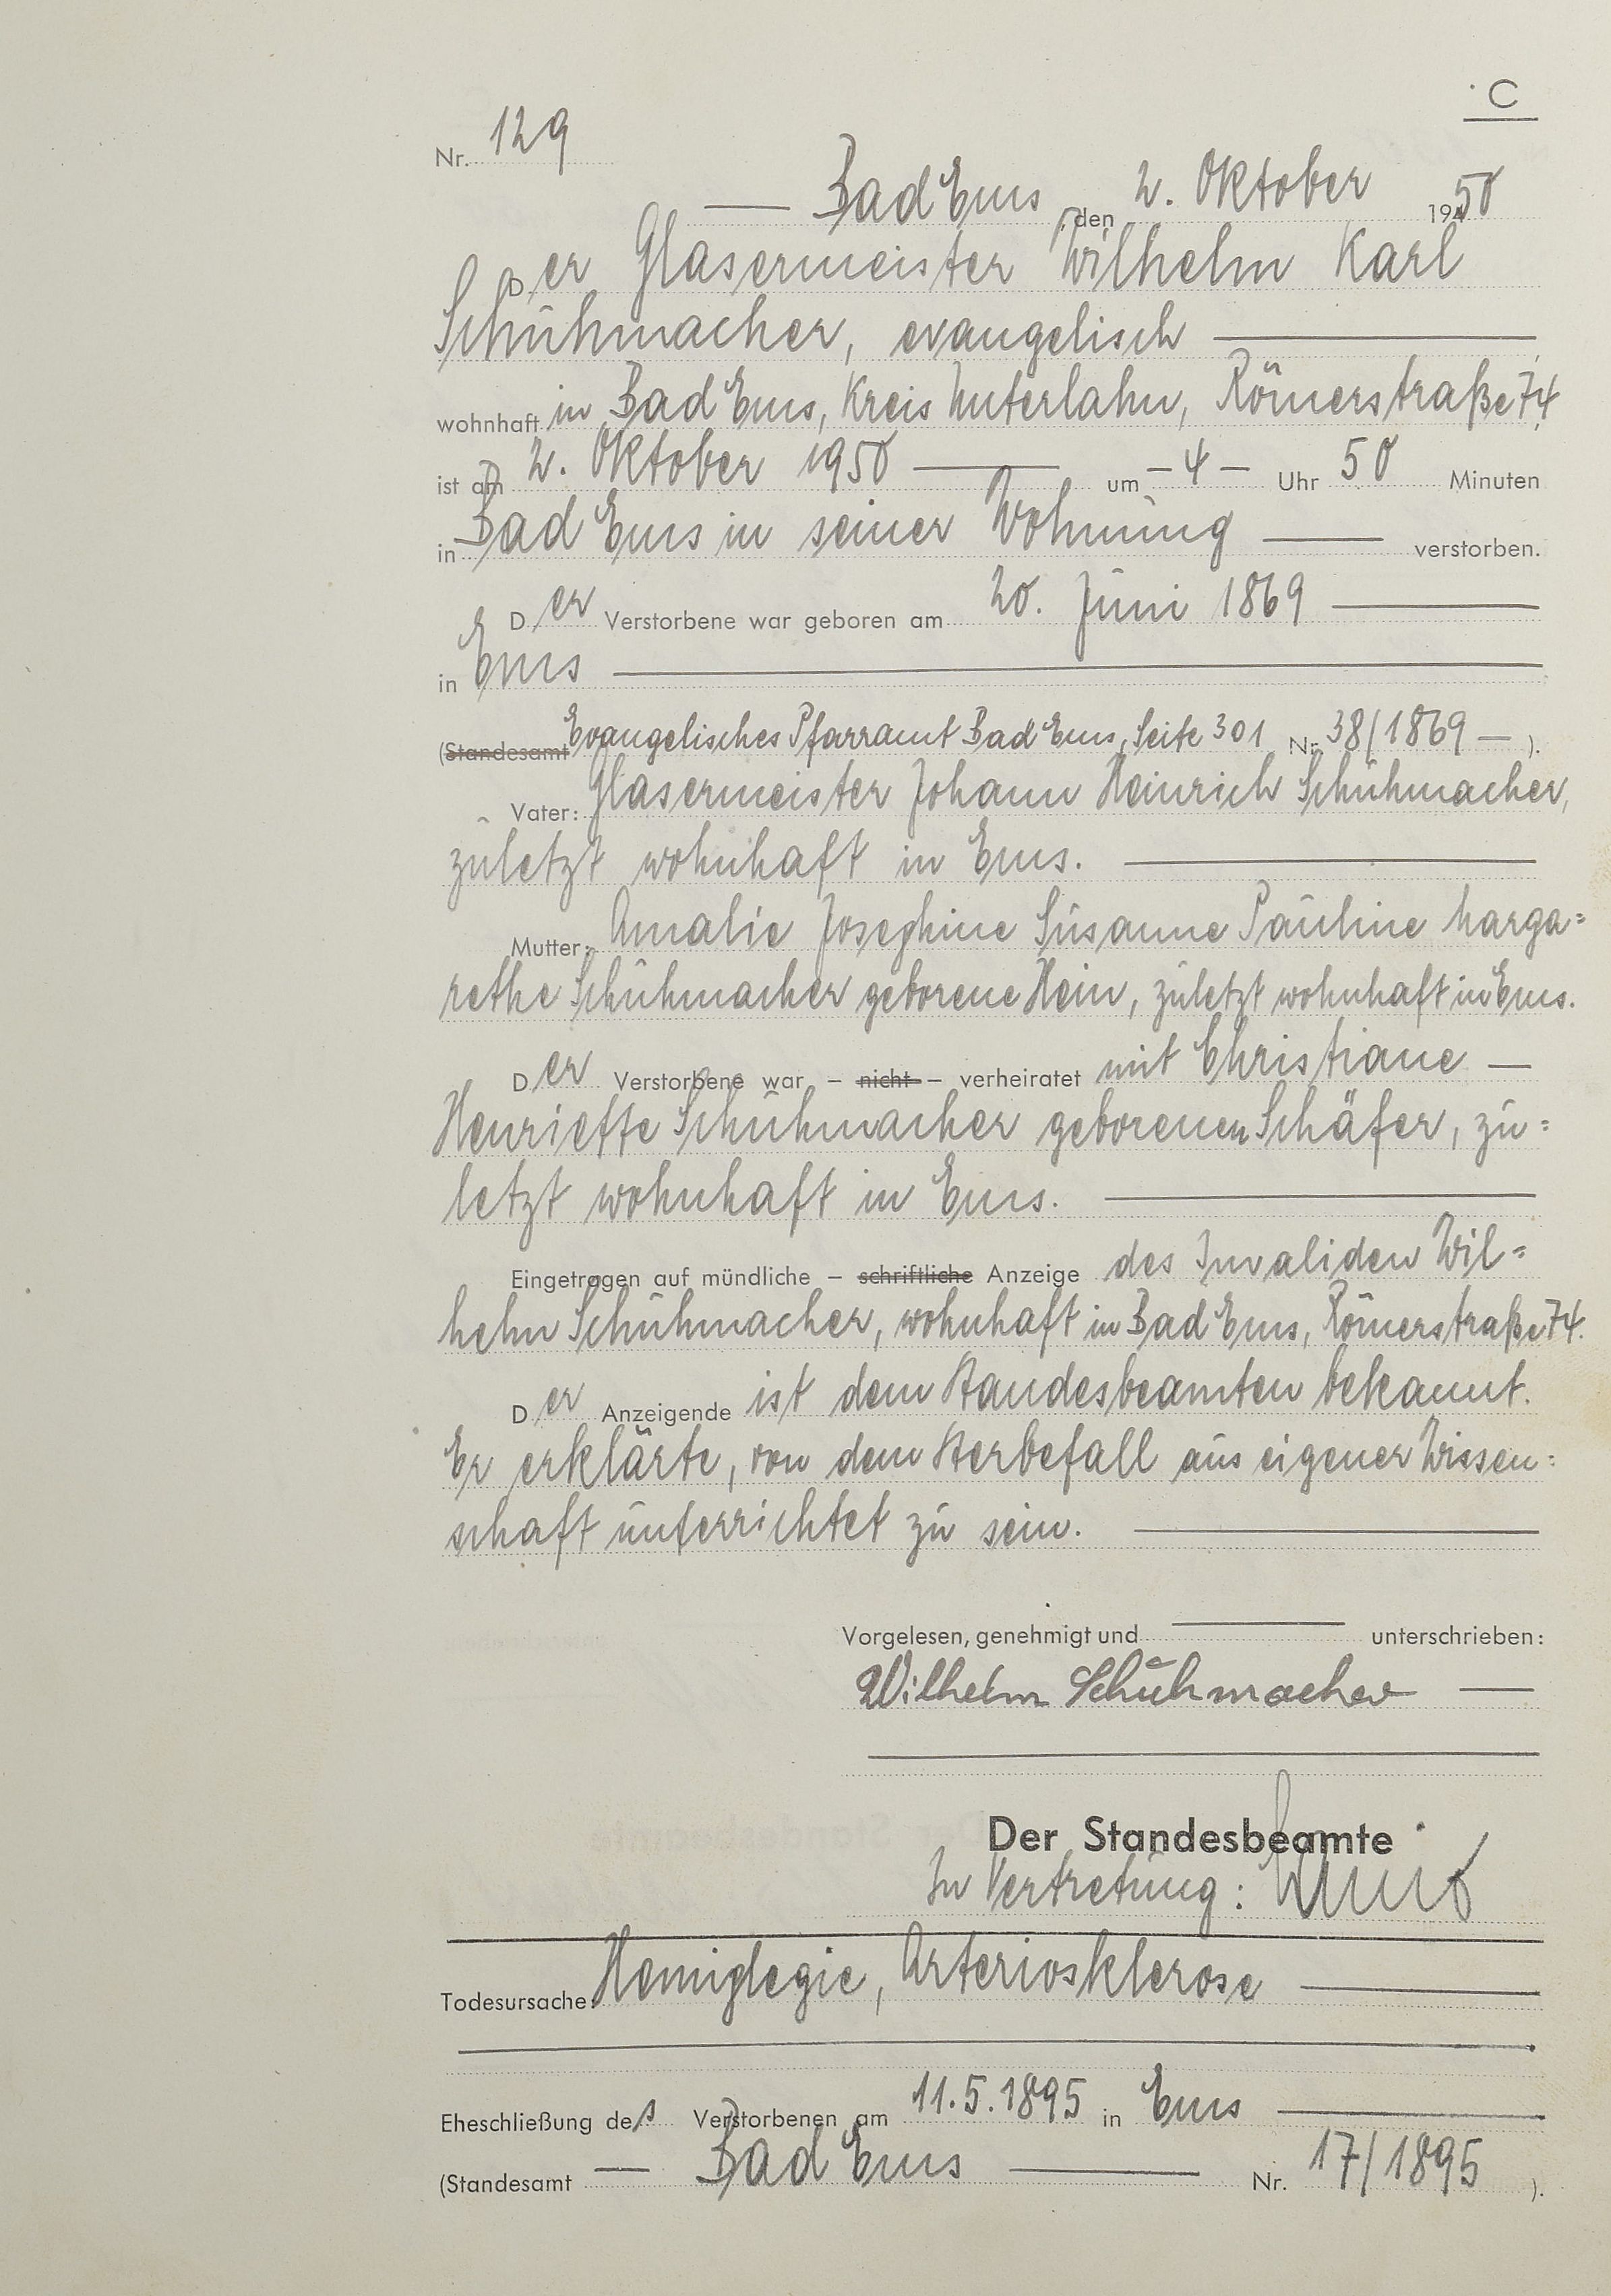 C
Nr. 129
Bad Ems, den 2. Oktober 1950
Der Glasermeister Wilhelm Karl
Schuhmacher, evangelisch
wohnhaft in Bad Ems, Kreis Unterlahn, Römerstraße 74,
ist am 2. Oktober 1950 um - 4 - Uhr 50 Minuten
in Bad Ems in seiner Wohnung verstorben.
Der Verstorbene war geboren am 20. Juni 1869
in Ems
(Standesamt Evangelisches Pfarramt Bad Ems, Seite 301 Nr. 38/1869 — ).
Vater: Glasermeister Johann Heinrich Schuhmacher,
zuletzt wohnhaft in Ems.
Mutter: Amalie Josephine Susanne Pauline Marga=
rethe Schuhmacher geborene Hein, zuletzt wohnhaft in Ems.
Der Verstorbene war – nicht – verheiratet mit Christiane —
Henriette Schuhmacher geborenen Schäfer, zu=
letzt wohnhaft in Ems.
Eingetragen auf mündliche – schriftliche Anzeige des Invaliden Wil=
helm Schuhmacher, wohnhaft in Bad Ems, Römerstraße 74.
Der Anzeigende ist dem Standesbeamten bekannt.
Er erklärte, von dem Sterbefall aus eigener Wissen=
schaft unterrichtet zu sein.
Vorgelesen, genehmigt und unterschrieben:
Wilhelm Schuhmacher
Der Standesbeamte
In Vertretung:
Todesursache: Hemiplegie, Arteriosklerose
Eheschließung des Verstorbenen am 11.5.1895 in Ems
(Standesamt — Bad Ems — Nr. 17/1895 ).